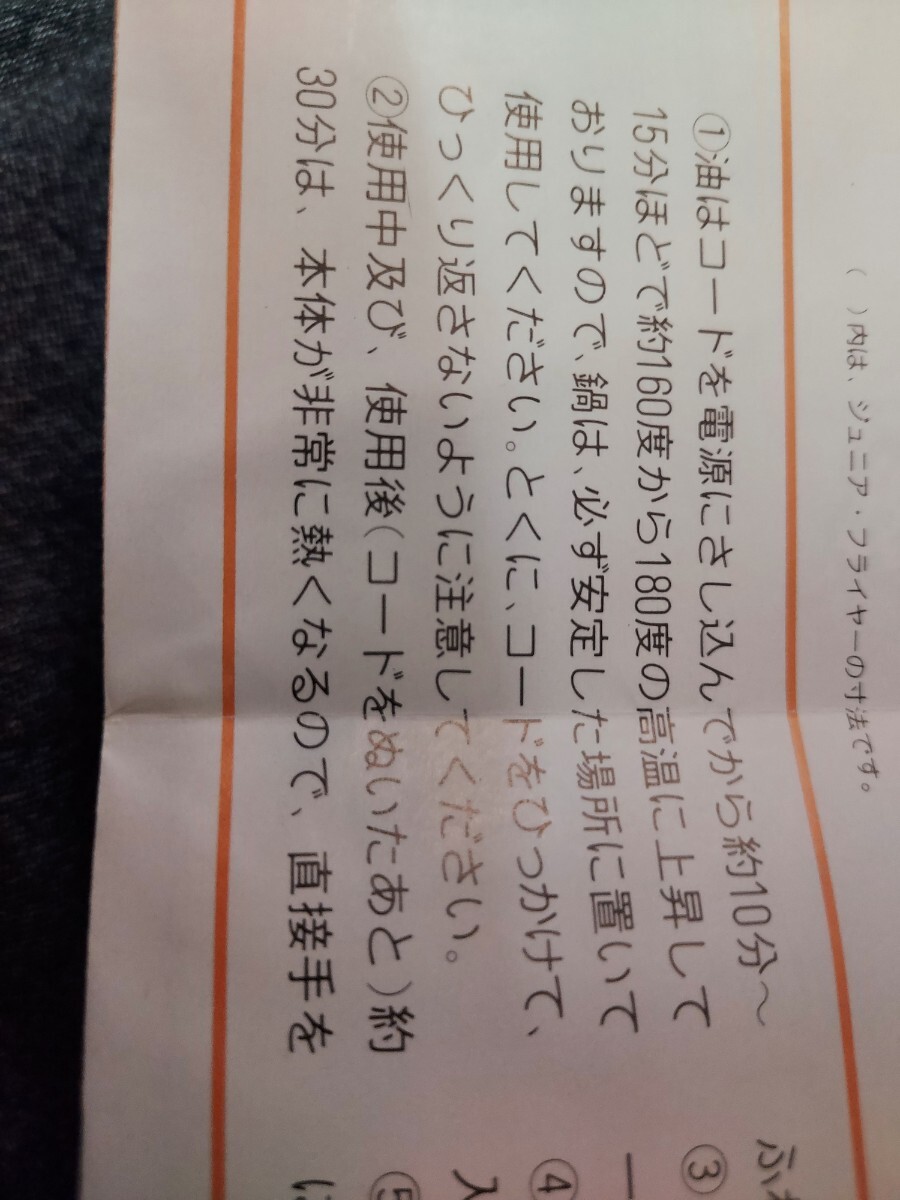 ( )内は、ジュニア・フライヤーの寸法です。
①油はコードを電源にさし込んでから約10分〜
15分ほどで約160度から180度の高温に上昇して
おりますので、鍋は、必ず安定した場所に置いて
使用してください。とくに、コードをひっかけて、
ひっくり返さないように注意してください。
②使用中及び、使用後(コードをぬいたあと)約
30分は、本体が非常に熱くなるので、直接手を
ふ
③
ー
④
入
⑤
に